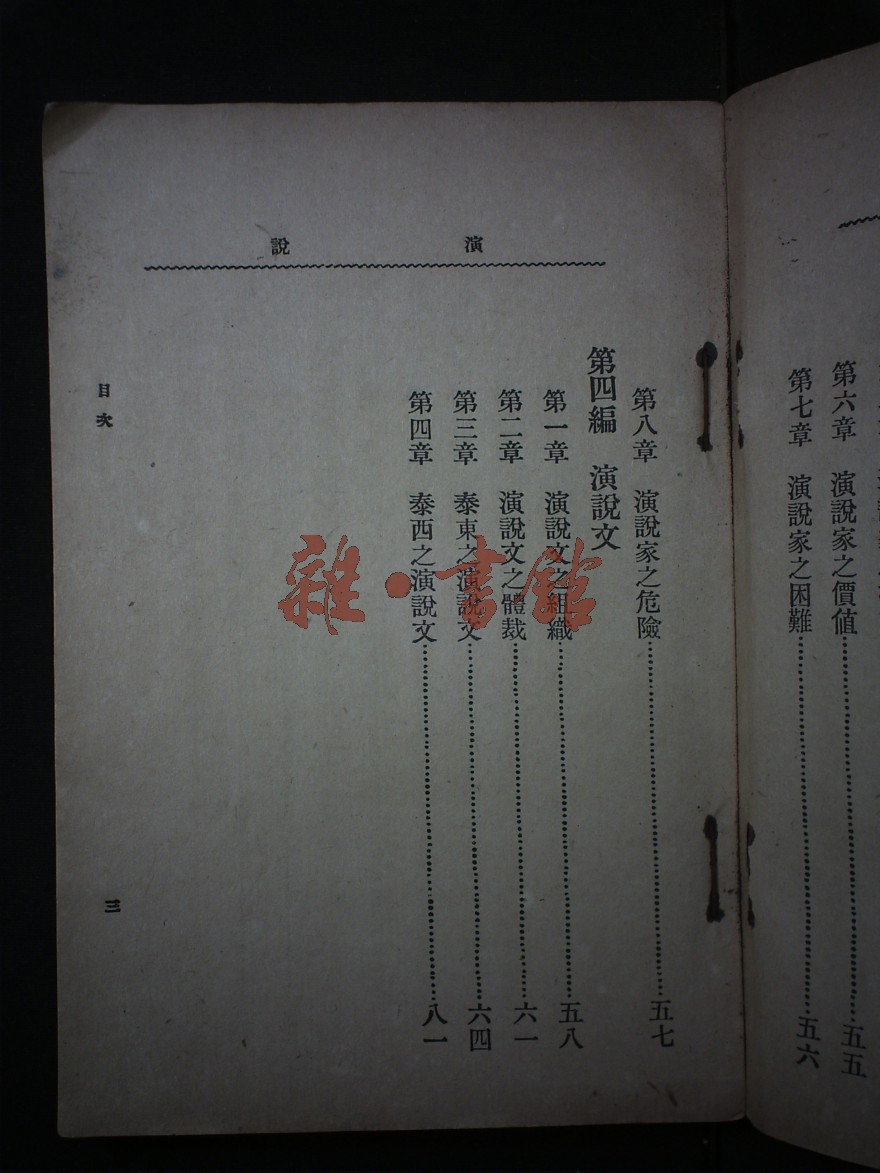 第六章　演說家之價値…………五五
第七章　演說家之困難…………五六
演說
第八章　演說家之危險…………五七
第四編　演說文
第一章　演說文之組織…………五八
第二章　演說文之體裁…………六一
第三章　泰東之演說文…………六四
第四章　泰西之演說文…………八一
目次
三
雜·書館